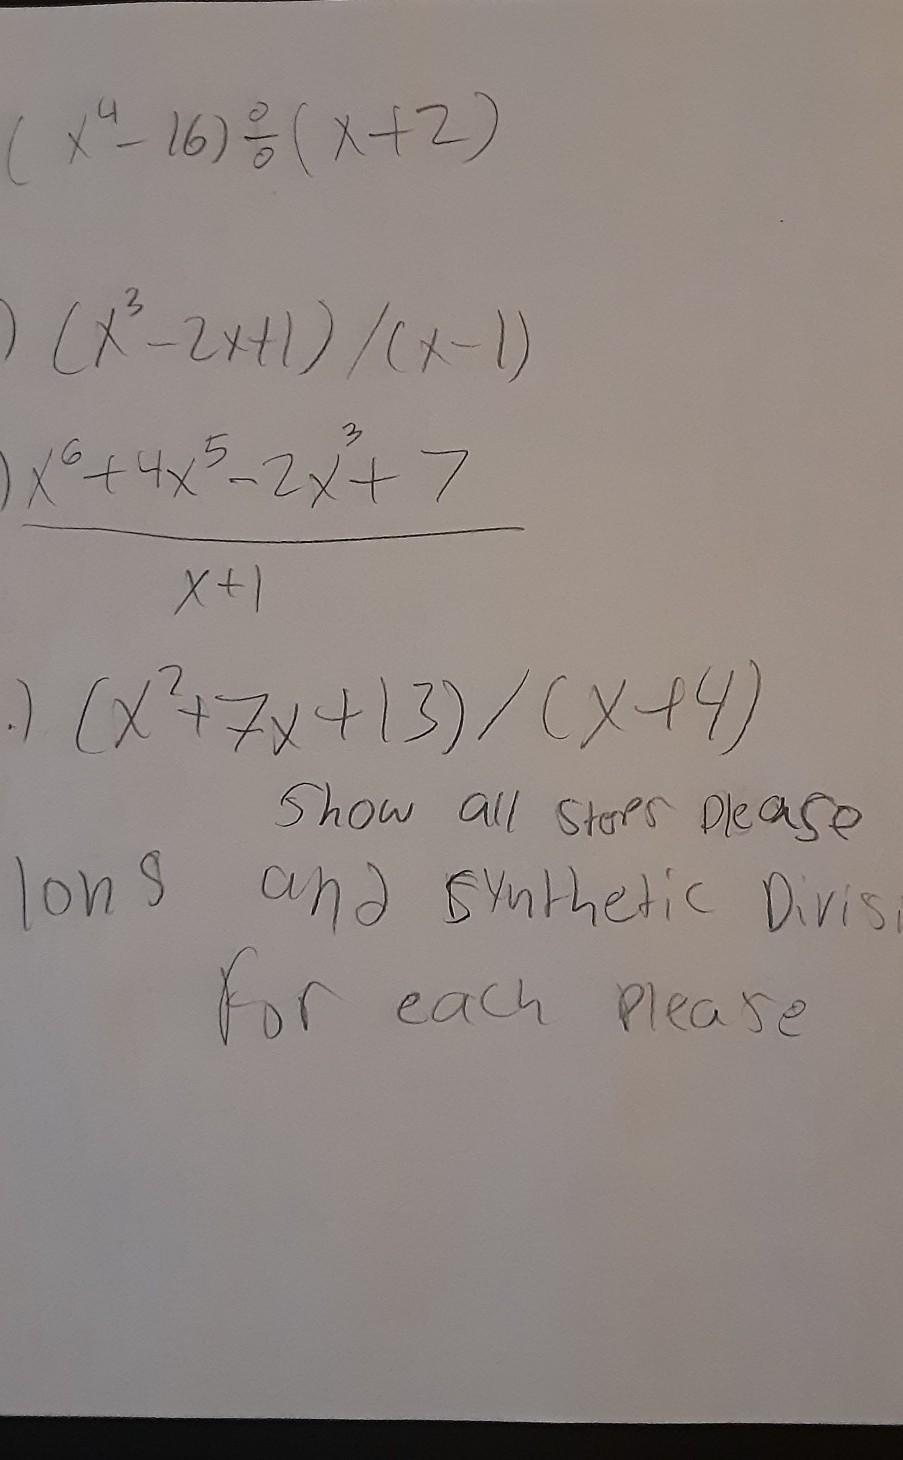 ( x⁴ - 16) ÷ (x+2)
) (x³ - 2x+1) / (x-1)
) x⁶ + 4x⁵ - 2x³ + 7
x+1
.) (x² + 7x + 13) / (x+4)
Show all steps please
long and synthetic Divisi
For each please